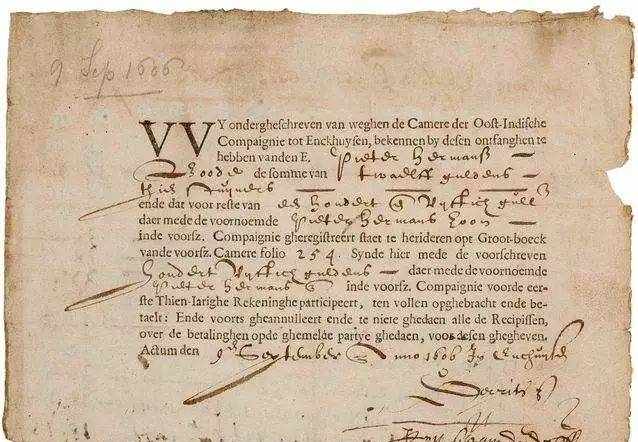 9 Sep 1606
VVY ondergheschreven van weghen de Camere der Oost-Indische
Compaignie tot Enckhuysen, bekennen by desen ontfanghen te
hebben vanden E. Pieter Hermansz
de somme van twaelff guldens
ende dat voor reste van hondert vyftich
daer mede de voornoemde Pieter Hermans zoon
inde voorsz. Compaignie gheregistreert staet te herideren opt Groot-boeck
vande voorsz. Camere folio 254. Synde hier mede de voorschreven
hondert vyftich guldens daer mede de voornoemde
Pieter Hermans inde voorsz. Compaignie voorde eer-
ste Thien-Iarighe Rekeninghe participeert, ten vollen opghebracht ende be-
taelt: Ende voorts gheannulleert ende te niete ghedaen alle de Recipissen,
over de betalinghen opde ghemelde partye ghedaen, voor desen ghegheven.
Actum den 9 September Anno 1606